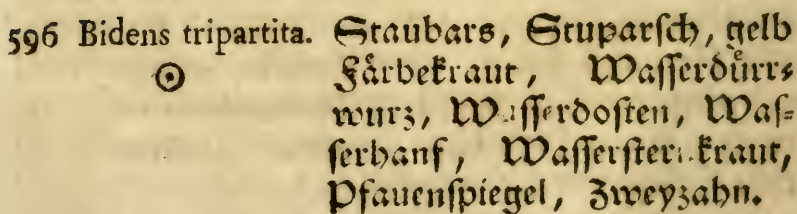 596 Bidens tripartita. Staubars, Stuparsch, gelb
☉ Färbekraut, Wasserdürr⸗
wurz, Wasserdosten, Was⸗
serhanf, Wassersternkraut,
Pfauenspiegel, Zweyzahn.